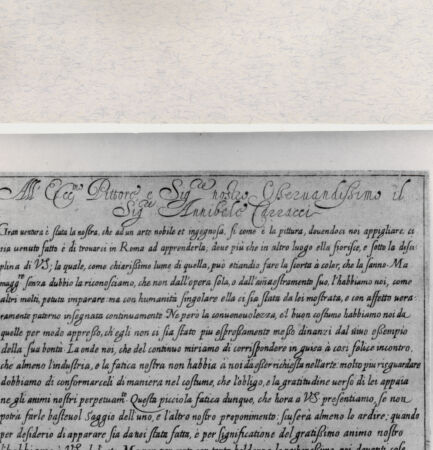 All' Ecc.mo Pittore e Sig.re nostro Osseruandissimo il
Sig.re Annibale Carracci
Gran uentura è stata la nostra, che ad un arte nobile et ingegnosa, si come è la pittura, douendoci noi appigliare, ci
sia uenuto fatto è di trouarci in Roma ad apprenderla, doue più che in altro luogo ella fiorisce, e sotto la disci
plina di VS; la quale, come chiarissimo lume di quella, può etiandio fare la scorta à color, che la sanno. Ma
magg.re senza dubbio la riconosciamo, che non dall'opera sola, o dall' ammaestramento suo, l'habbiamo noi, come
altri molti, potuta imparare, ma con humanità singolare ella ci sia stata da lei mostrata, e con affetto uera
ramente paterno insegnata continuamente. Ne però la conueneuolezza, el buon costume habbiamo noi da
quelle per modo appreso, ch'egli non ci sia stato più espressamente messo dinanzi dal uiuo essempio
della sua bontà. La onde noi, che del continuo miriamo di corrispondere in guisa à cosi felice incontro,
che almeno l'industria, e la fatica nostra non habbia à noi da esser richiesta nell'arte, molto più risguardare
dobbiamo di conformarceli di maniera nel costume, che l'obligo, e la gratitudine uerso di lei appaia
ne gli animi nostri perpetuam.te Questa picciola fatica dunque, che hora a VS presentiamo, se non
potrà farle basteuol saggio dell'uno, e l'altro nostro proponimento: scuserà almeno lo ardire; quando
per desiderio di apparire sia da noi stata fatta, è per significatione del gratissimo animo nostro